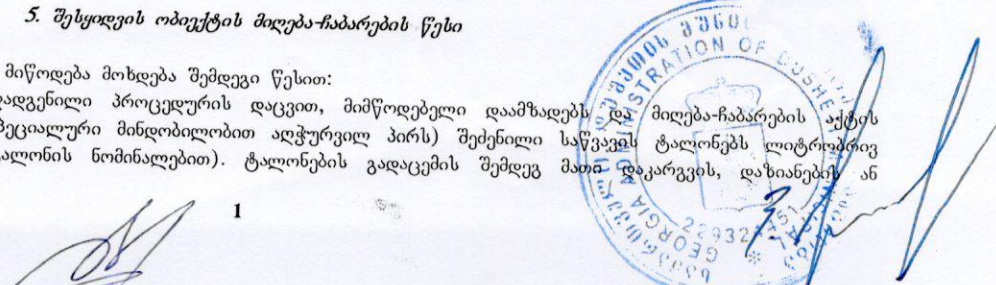 5. შესყიდვის ობიექტის მიღება-ჩაბარების წესი
მიწოდება მოხდება შემდეგი წესით:
დადგენილი პროცედურის დაცვით, მიმწოდებელი დაამზადებს და მიღება-ჩაბარების აქტის
სპეციალური მინდობილობით აღჭურვილ პირს) შეძენილი საწვავის ტალონებს ლიტრობრივ
ტალონის ნომინალებით). ტალონების გადაცემის შემდეგ მათი დაკარგვის, დაზიანების ან
1
ADMINISTRATION OF DUSHE
GEORGIA